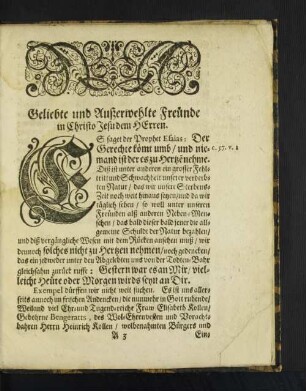 Geliebte und Außerwehlte Freünde
in Christo Jesu dem HErren.
ES saget der Prophet Esaias: Der
Gerechte kömt umb / und nie-
mand ist der es zu Hertzē nehme.
c. 57. v. 1
Diß ist unter anderen ein grosser Fehl-
tritt und Schwachheit unserer verderb-
ten Natur / das wir unser Sterbens-
Zeit noch weit hinaus setzen, und da wir
täglich sehen / so woll unter unseren
Freünden alß anderen Neben-Men-
schen / das bald dieser bald jener die all-
gemeine Schuldt der Natur bezahlen /
und diß vergängliche Wesen mit dem Rücken ansehen muß / wir
dennoch solches nicht zu Hertzen nehmen / noch gedencken /
das ein jedweder unter den Abgelebten uns von der Todten-Bahr
gleichsahm zurück ruffe: Gestern war es an Mir / viel-
leicht Heüte oder Morgen wird's seyn an Dir.
Exempel dürffen wir nicht weit suchen. Es ist uns aller-
seits annoch in frischen Andencken / die nunmehr in Gott ruhende
Weiland viel Ehr- und Tugendreiche Fraw Elisabeth Kollen /
Gebohrne des Wol-Ehrenvesten und Vorachtbahren
Herrn Heinrich Kollen / wolbenahmten Bürgers und
A 3
Ein-